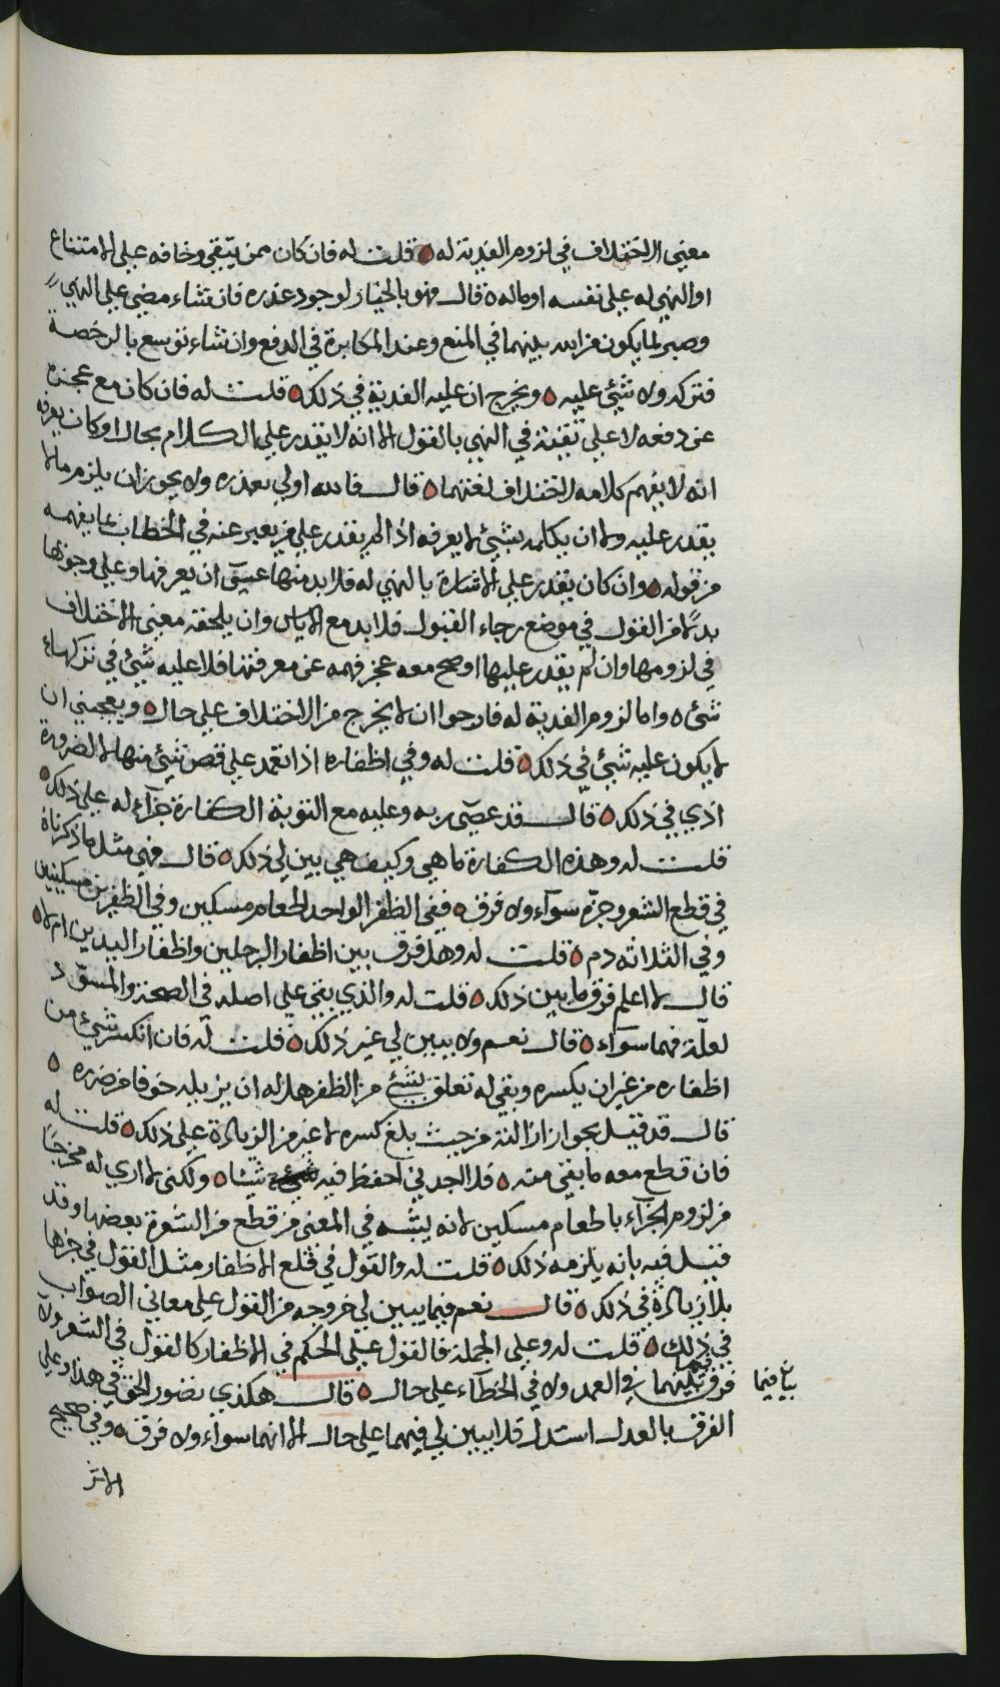 معنى الاختلاف في لزوم الفدية له ه قلت له فان كان ممن يتقى وخافه على الامتناع
او النهي له على نفسه او ماله ه قال فهو بالخيار لوجود عذره فان شاء مضى على النهي
وصبر لما يكون من الله بينهما في المنع وعند المكابرة في الدفع وان شاء توسع بالرخصة
فتركه ولا شئ عليه ه ويخرج ان عليه الفدية في ذلك ه قلت له فان كان مع عجزه
عن دفعه لا على تقية في النهي بالقول الا انه لا يقدر على الكلام بحال او كان يعرفه
انه لا يفهم كلامه لاختلاف لغتهما ه قال فالله اولى بعذره ولا يجوز ان يلزم ما لا
يقدر عليه ولا ان يكلمه بشئ لا يعرفه اذا لم يقدر على من يعبر عنه في الخطاب ما يفهمه
من قوله ه وان كان يقدر على الاشارة بالنهي له فلا بد منها عسى ان يعرفها وعلى وجوبها
بدلا من القول في موضع رجاء القبول فلا بد مع الاياس وان يلحقه معنى الاختلاف
في لزومها وان لم يقدر عليها او صح معه عجز فهمه عن معرفتها فلا عليه شئ في تركها
شئ ه واما لزوم الفدية له فارجوا ان لا يخرج من الاختلاف على حال ه ويعجبني ان
لا يكون عليه شئ في ذلك ه قلت له وفي اظفاره اذا تعمد على قص شئ منها لا لضرورة
اذي في ذلك ه قال قد عصى ربه وعليه مع التوبة الكفارة جزآء له على ذلك ه
قلت له وهذه الكفارة ما هي وكيف هي بين لي ذلك ه قال فهي مثل ما ذكرناه
في قطع الشعر وجزه سوآء ولا فرق ه ففي الظفر الواحد اطعام مسكين وفي الظفرين مسكينين
وفي الثلاثة دم ه قلت له وهل فرق بين اظفار الرجلين واظفار اليدين ام لا ه
قال لا اعلم فرق ما بين ذلك ه قلت له والذي بقي على اصله في الصحة والمسوّد
لعلّة فهما سوآء ه قال نعم ولا يبين لي غير ذلك ه قلت له فان انكسر شئ من
اظفاره من غير ان يكسره وبقي له تعلق بشئ من الظفر هل له ان يزيله خوفا من ضرره ه
قال قد قيل بجواز ازالته من حيث بلغ كسره لا غير من الزيادة على ذلك ه قلت له
فان قطع معه ما بقي منه ه فلا اجدني احفظ فيه شيئا ه ولكني لا اري له مخرجا
من لزوم الجزآء باطعام مسكين لانه يشبه في المعنى من قطع من الشعرة بعضها وقد
قيل فيه بانه يلزمه ذلك ه قلت له والقول في قلع الاظفار مثل القول في جزها
بلا زيادة في ذلك ه قال نعم فيما يبين لي خروجه من القول على معاني الصواب
في ذلك ه قلت له وعلى الجملة فالقول على الحكم في الاظفار كالقول في الشعر ولا
فرق بينهما في العمد ولا في الخطآء على حال ه قال هكذي تصور الحق في هذا وعلى
الفرق بالعدل استدل فلا يبين لي فيهما على حال الا انهما سوآء ولا فرق ه وفي صحيح
الاثر